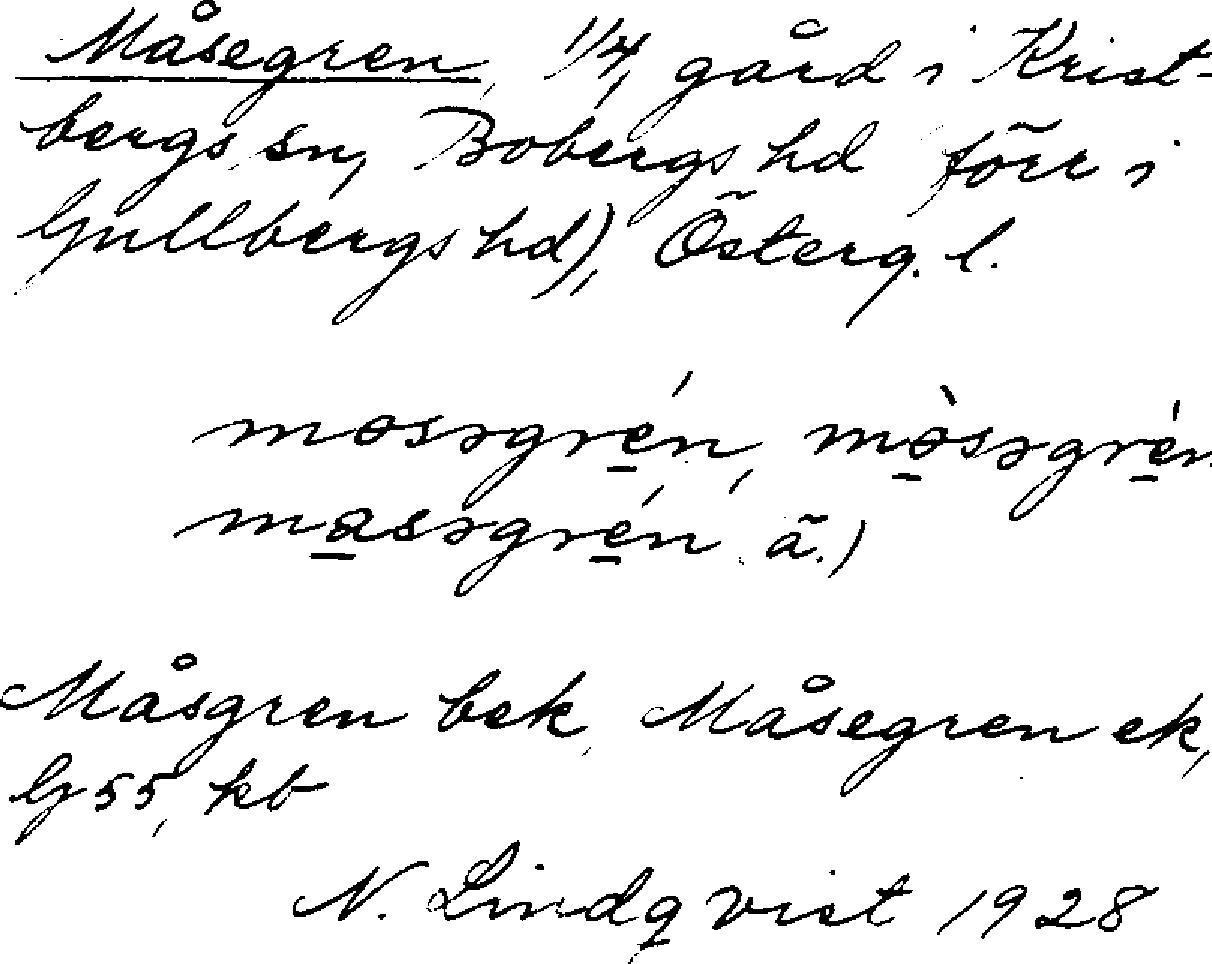 Måsegren, 1/4, gård i Krist-
bergs sn, Bobergs hd förr i
Gullbergs hd), Österg. l.
mosəgrén, mòsəgrén
masəgrén ä.)
Måsgren bek, Måsegren ek,
G 55, kb
N. Lindqvist 1928